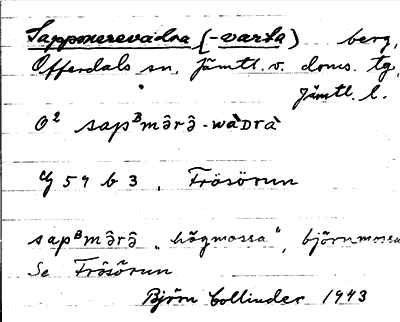 Sappmerevadna (-varta) berg,
Offerdals sn. Jämtl. v. doms. tg,
Jämtl. l.
O² sapᴮmȧ̂rȧ̂-wàᴅrà
59 b 3, Frösörun
sapᴮmȧ̂rȧ̂ „högmossa", björnmossa
Se Frösörun
Björn Collinder 1943